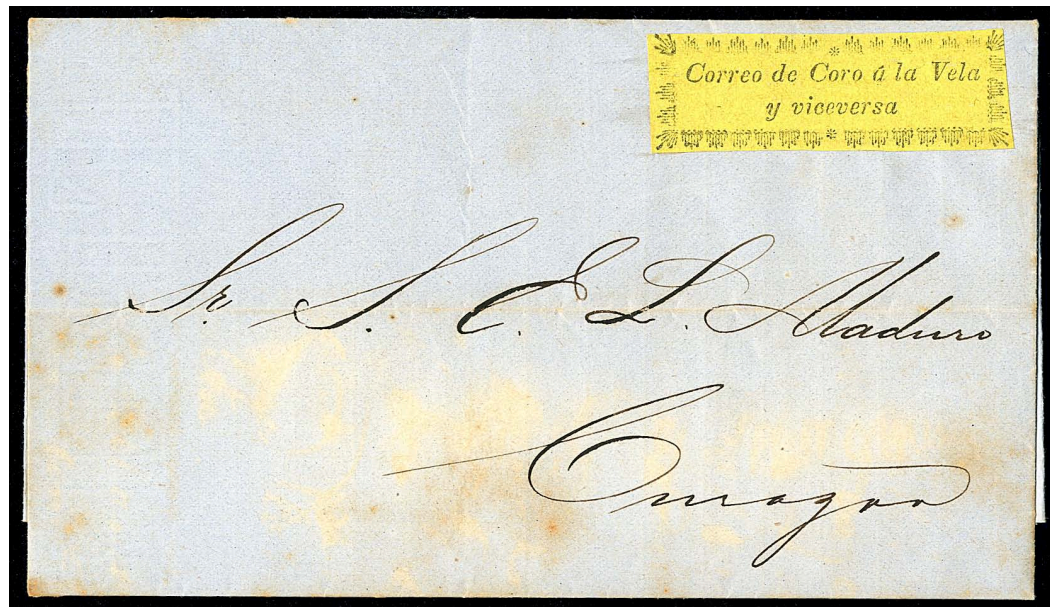 Correo de Coro á la Vela
y viceversa
Sr. S. E. L. Maduro
Curaçao